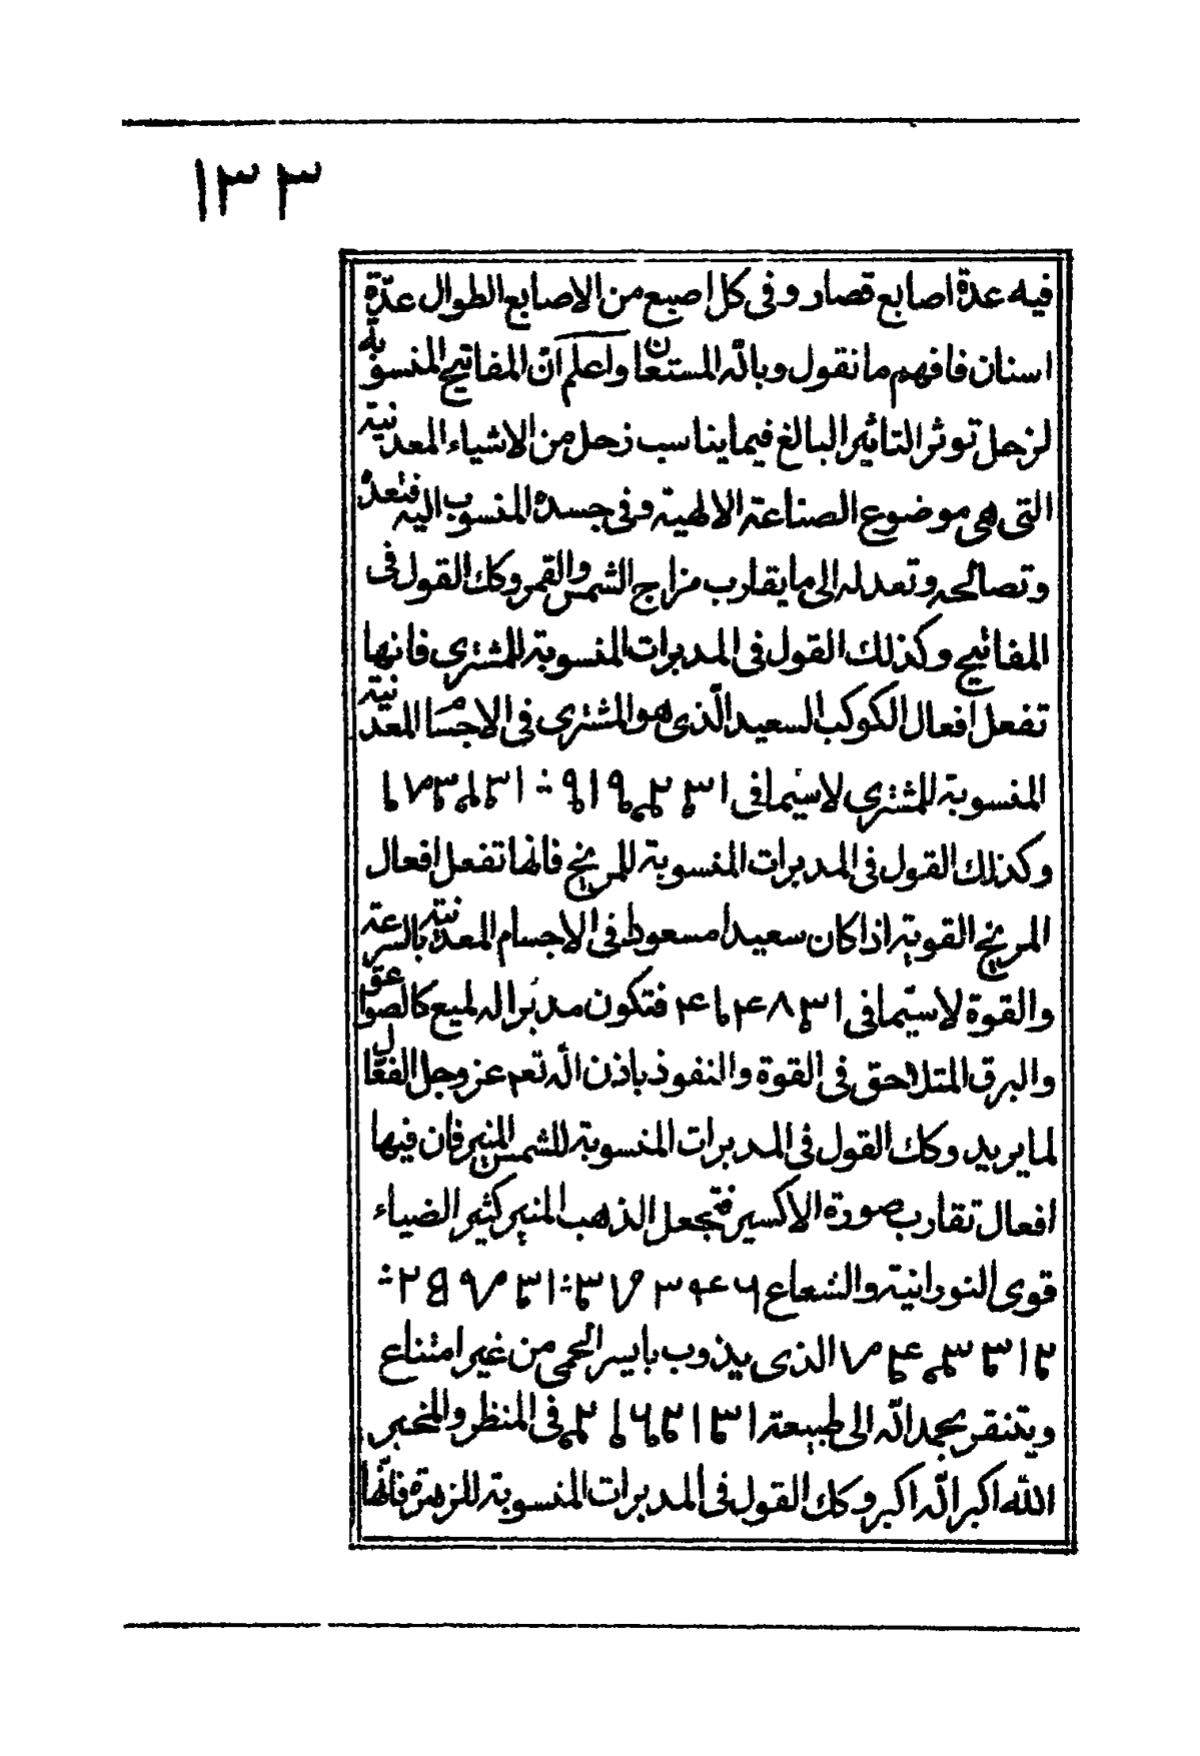 ١٣٣
فيه عدة اصابع قصار وفى كل اصبع من الاصابع الطوال عدّة
اسنان فافهم ما نقول وبالله المستعان واعلم انّ المفاتيح المنسوبة
لزحل توثر التاثير البالغ فيما يناسب زحل من الاشياء المعدنية
التى هى موضوع الصناعة الالهية وفى جسده المنسوب اليه فتعده
وتصالحه وتعدله الى ما يقارب مزاج الشمس والقمر وكك القول فى
المفاتيح وكذلك القول فى المدبرات المنسوبة للمشترى فانها
تفعل افعال الكوكب السعيد الّذى هو المشترى فى الاجسام المعدنية
المنسوبة للمشترى لاسيما فى
وكذلك القول فى المدبرات المنسوبة للمريخ فانها تفعل افعال
المريخ القوية اذا كان سعيدا مسعودا فى الاجسام المعدنية بالسرعة
والقوة لاسيّما فى فتكون مدبرا له لميع كالصواعق
والبرق المتلاحق فى القوة والنفوذ باذن الله تعم عز وجل الفعّال
لما يريد وكك القول فى المدبرات المنسوبة للشمس المنير فان فيها
افعال تقارب صورة الاكسير فتجعل الذهب المنير كثير الضياء
قوى النورانية والشعاع
الذى يذوب بايسر الحمى من غير امتناع
بحمد الله الى طبيعة فى المنظر والمخبر
الله اكبر الله اكبر وكك القول فى المدبرات المنسوبة للزهرة فانّها